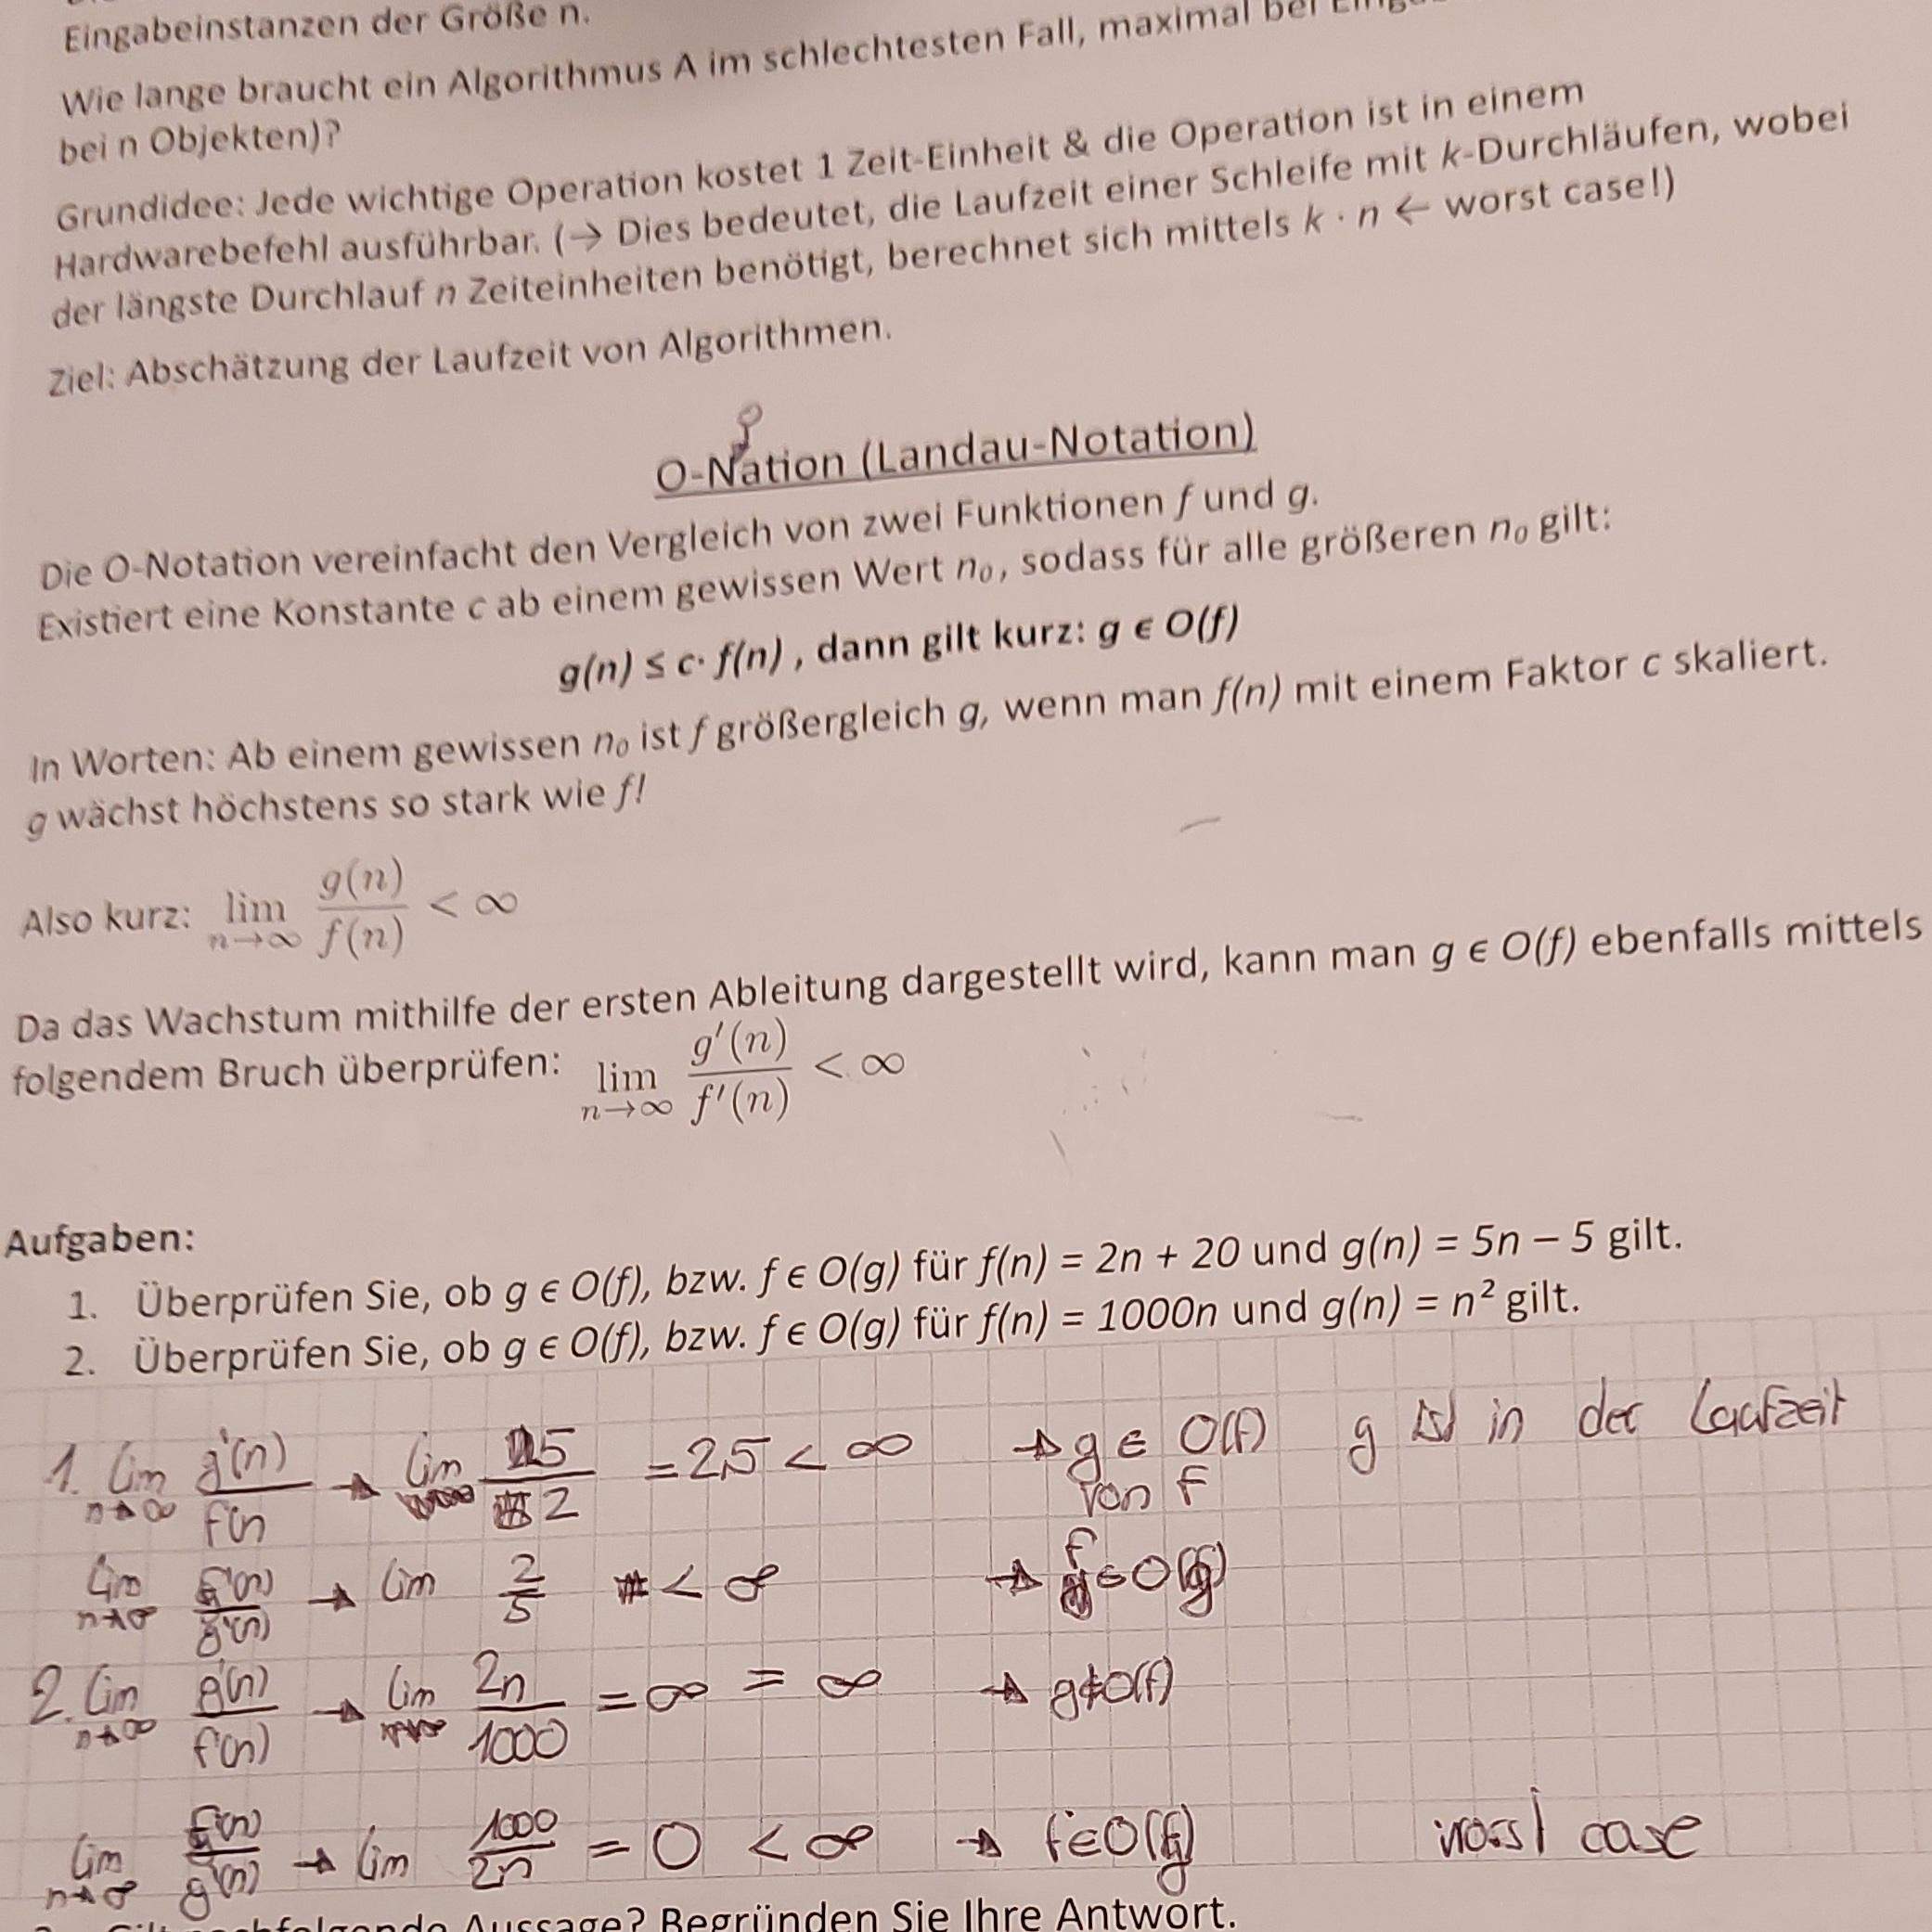 Eingabeinstanzen der Größe n.
Wie lange braucht ein Algorithmus A im schlechtesten Fall, maximal bei
bei n Objekten)?
Grundidee: Jede wichtige Operation kostet 1 Zeit-Einheit & die Operation ist in einem
Hardwarebefehl ausführbar. (→ Dies bedeutet, die Laufzeit einer Schleife mit k-Durchläufen, wobei
der längste Durchlauf n Zeiteinheiten benötigt, berechnet sich mittels k · n ← worst case!)
Ziel: Abschätzung der Laufzeit von Algorithmen.
O-Nation (Landau-Notation)
Die O-Notation vereinfacht den Vergleich von zwei Funktionen f und g.
Existiert eine Konstante c ab einem gewissen Wert n₀, sodass für alle größeren n₀ gilt:
g(n) ≤ c· f(n) , dann gilt kurz: g ϵ O(f)
In Worten: Ab einem gewissen n₀ ist f größergleich g, wenn man f(n) mit einem Faktor c skaliert.
g wächst höchstens so stark wie f!
Also kurz: lim n→∞ g(n)/f(n) < ∞
Da das Wachstum mithilfe der ersten Ableitung dargestellt wird, kann man g ϵ O(f) ebenfalls mittels
folgendem Bruch überprüfen: lim n→∞ g'(n)/f'(n) < ∞
Aufgaben:
1. Überprüfen Sie, ob g ϵ O(f), bzw. f ϵ O(g) für f(n) = 2n + 20 und g(n) = 5n – 5 gilt.
2. Überprüfen Sie, ob g ϵ O(f), bzw. f ϵ O(g) für f(n) = 1000n und g(n) = n² gilt.
1. lim n→∞ g'(n)/f'(n → lim 5/2 = 2,5 < ∞ → g ∈ O(f) g ist in der Laufzeit
von f
lim n→∞ f'(n)/g'(n) → lim 2/5 < ∞ → f ∈ O(g)
2. lim n→∞ g'(n)/f'(n) → lim 2n/1000 = ∞ = ∞ → g∉O(f)
lim n→∞ f'(n)/g'(n) → lim 1000/2n = 0 < ∞ → f∈O(g) worst case
nachfolgende Aussage? Begründen Sie Ihre Antwort.